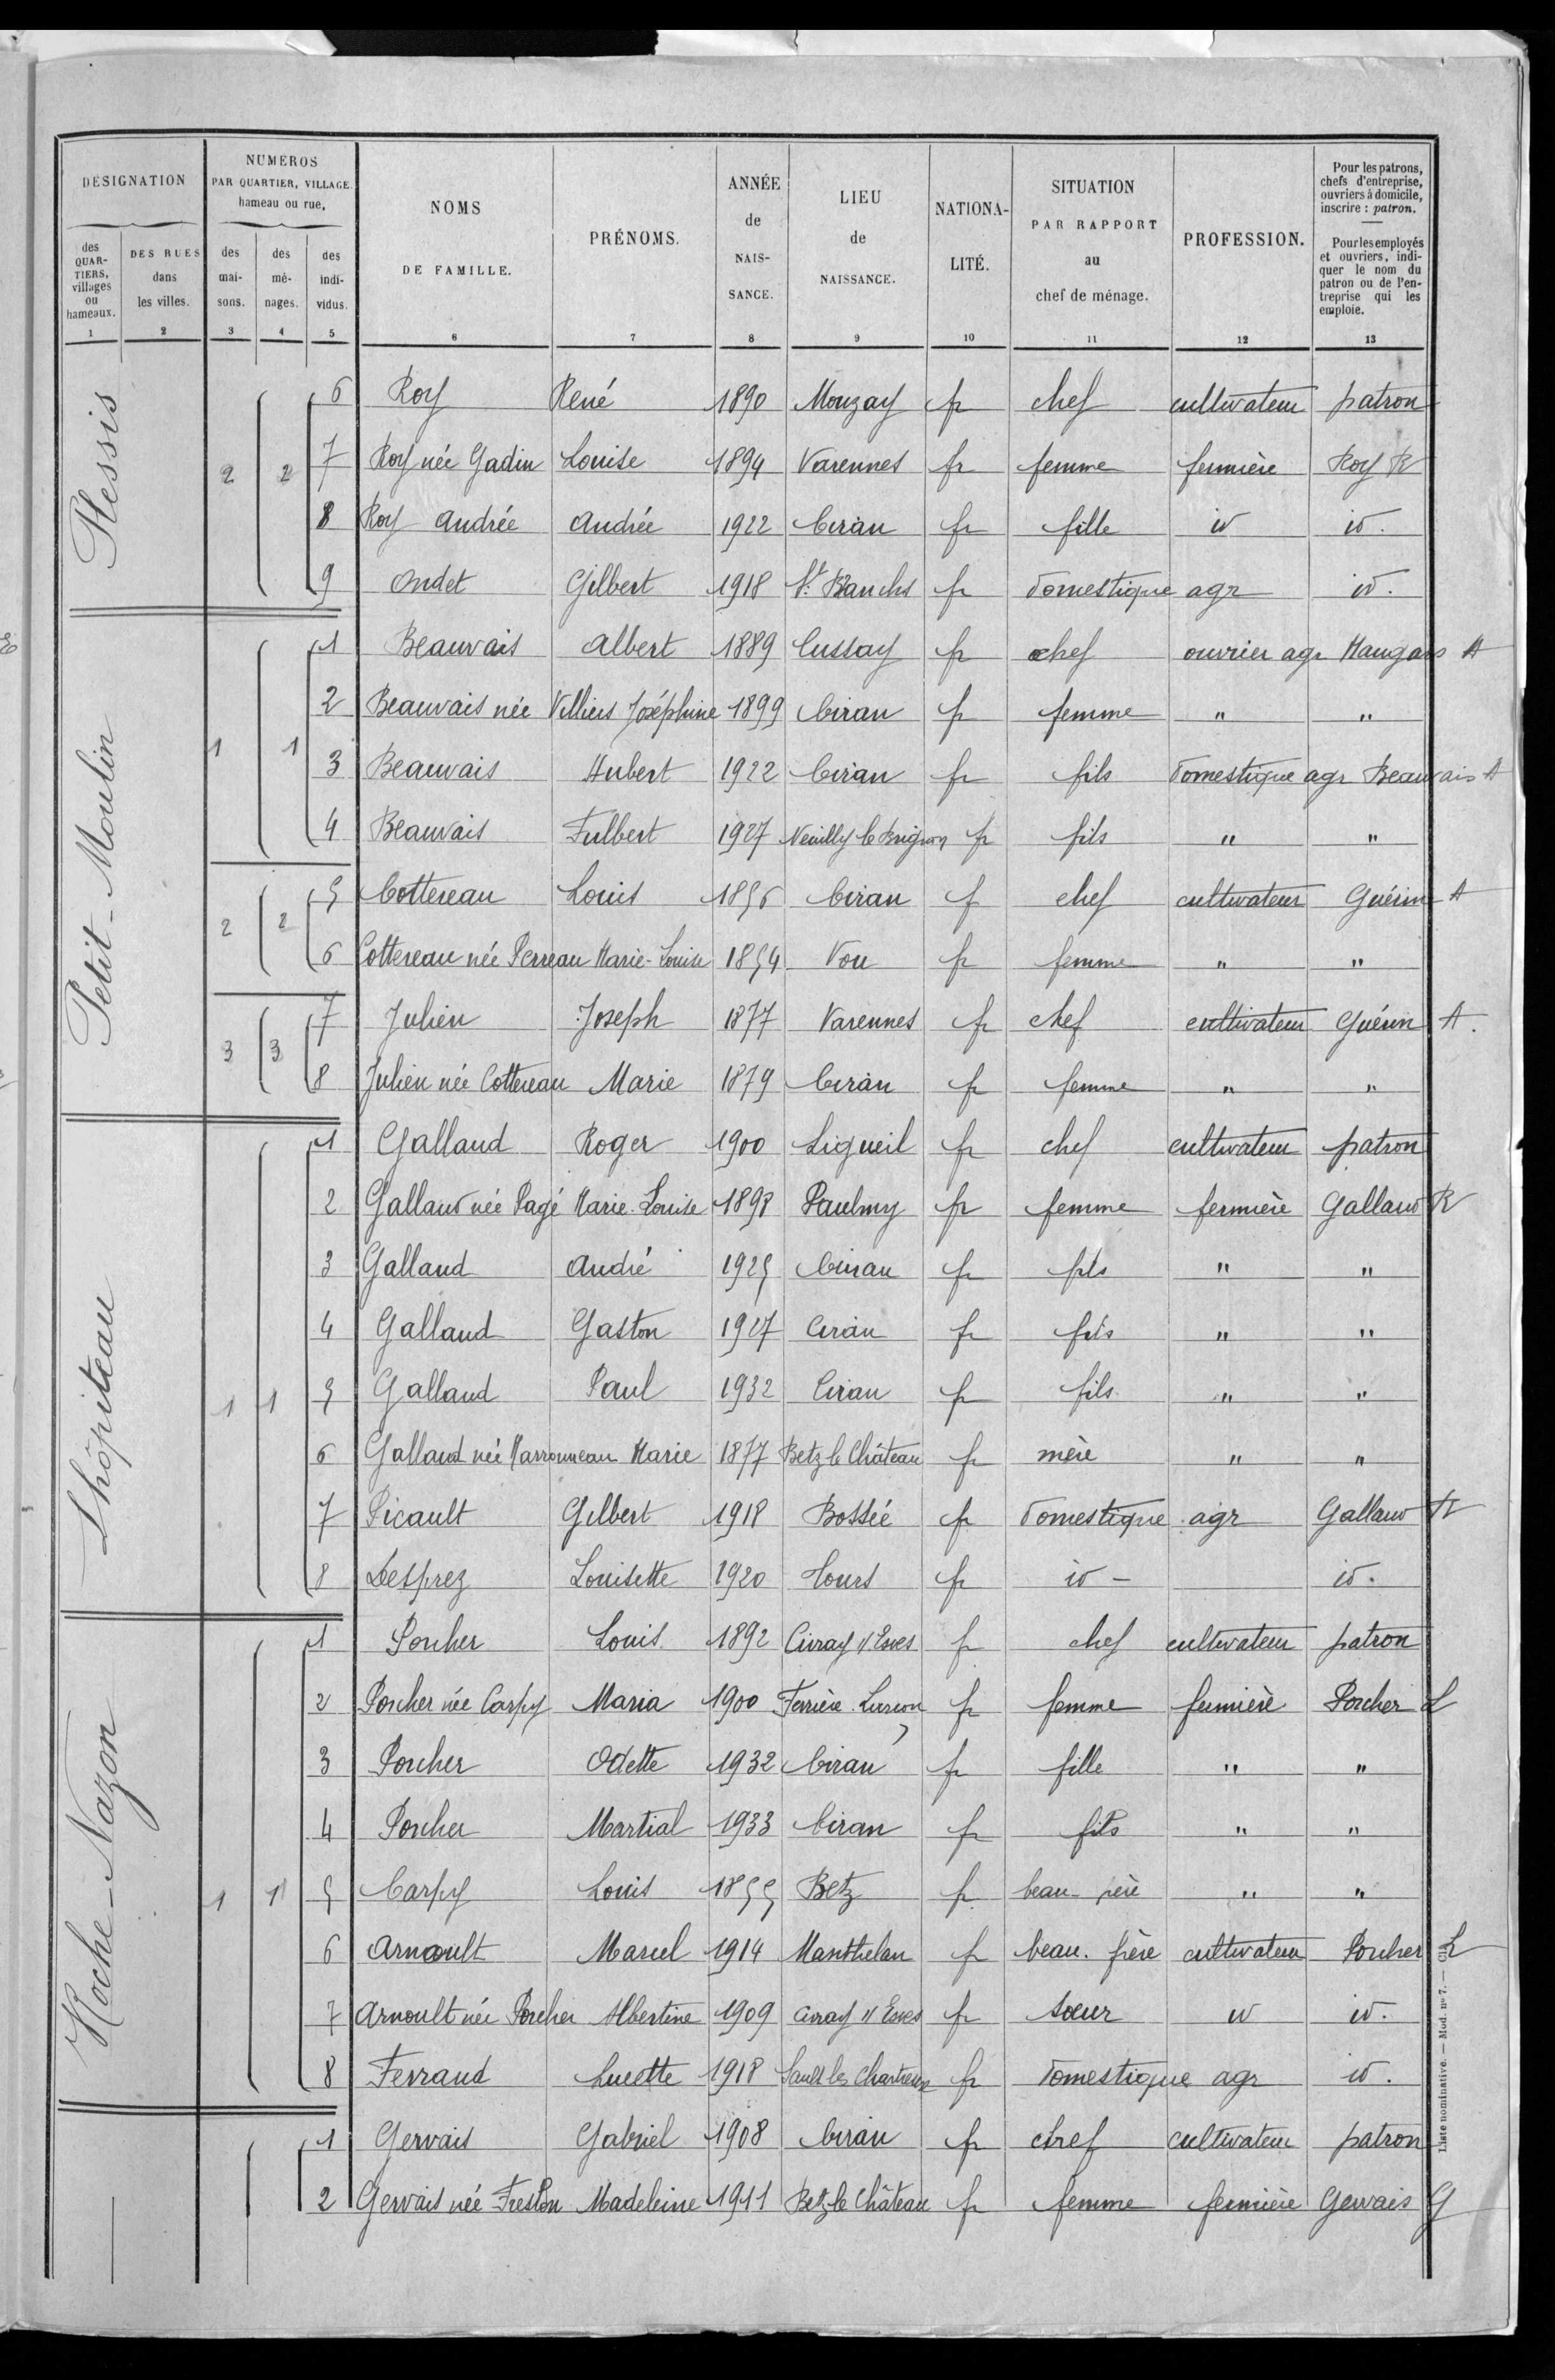 DÉSIGNATION
NUMÉROS PAR QUARTIER, VILLAGE, hameau ou rue,
des QUARTIERS, villages ou hameaux. 1
DES RUES dans les villes. 2
des maisons. 3
des ménages. 4
des individus. 5
NOMS DE FAMILLE. 6
PRÉNOMS. 7
ANNÉE de NAISSANCE. 8
LIEU de NAISSANCE. 9
NATIONALITÉ. 10
SITUATION PAR RAPPORT au chef de ménage. 11
PROFESSION. 12
Pour les patrons, chefs d'entreprise, ouvriers à domicile, inscrire : patron. — Pour les employés et ouvriers, indiquer le nom du patron ou de l'entreprise qui les emploie. 13
Plessis
2 2
6 Roy René 1890 Mouzay fr chef cultivateur patron
7 Roy née Gadin Louise 1894 Varennes fr femme fermière Roy R
8 Roy Andrée Andrée 1922 Ciran fr fille id id.
9 Ondet Gilbert 1918 St Branchs fr domestique agr id.
Petit-Moulin
1 1
1 Beauvais Albert 1889 Cussay fr chef ouvrier agr Maugars A
2 Beauvais née Villiers Joséphine 1899 Ciran fr femme " "
3 Beauvais Hubert 1922 Ciran fr fils domestique agr Beauvais A
4 Beauvais Fulbert 1927 Neuilly le Brignon fr fils " "
2 2
5 Cottereau Louis 1856 Ciran f chef cultivateur Guérin A
6 Cottereau née Perreau Marie-Louise 1854 Vou fr femme " "
3 3
7 Julien Joseph 1877 Varennes fr chef cultivateur Guérin A.
8 Julien née Cottereau Marie 1879 Ciran fr femme " "
Lhôpiteau
1 1
1 Galland Roger 1900 Ligueil fr chef cultivateur patron
2 Galland née Pagé Marie-Louise 1898 Paulmy fr femme fermière Galland R
3 Galland André 1925 Ciran fr fils " "
4 Galland Gaston 1927 Ciran fr fils " "
5 Galland Paul 1932 Ciran fr fils " "
6 Galland née Marronneau Marie 1877 Betz le Château fr mère " "
7 Picault Gilbert 1918 Bossée fr domestique agr Galland R
8 Desprez Louisette 1920 Tours fr id - id.
Roche-Nazon
1 1
1 Porcher Louis 1892 Civray s/ Esves fr chef cultivateur patron
2 Porcher née Carpy Maria 1900 Ferrière-Larçon fr femme fermière Porcher L
3 Porcher Odette 1932 Ciran fr fille " "
4 Porcher Martial 1933 Ciran fr fils " "
5 Carpy Louis 1855 Betz fr beau-père " "
6 Arnoult Marcel 1914 Manthelan fr beau-frère cultivateur Porcher L
7 Arnoult née Porcher Albertine 1909 Civray s/ Esves fr sœur id id.
8 Ferrand Lucette 1918 Saulx les Chartreux fr domestique agr id.
1 Gervais Gabriel 1908 Ciran fr chef cultivateur patron
2 Gervais née Freslon Madeleine 1911 Betz-le Château fr femme fermière Gervais G
Liste nominative. — Mod. n° 7. —